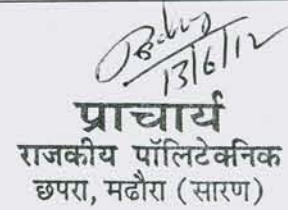 13/6/12
प्राचार्य
राजकीय पॉलिटेक्निक
छपरा, मढौरा (सारण)